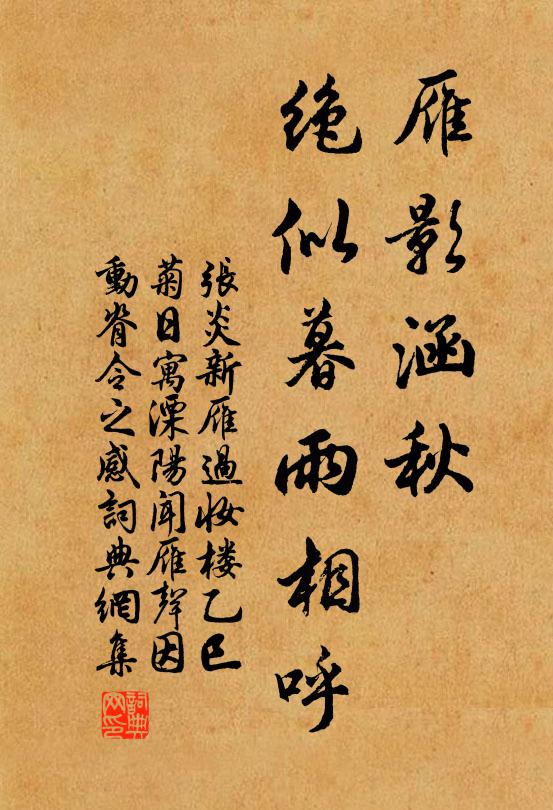 雁影涵秋
绝似暮雨相呼
張炎新雁過妆楼乙巳
菊日寓溧陽闻雁聲因
動脊令之感詞典網集
詞典
网印